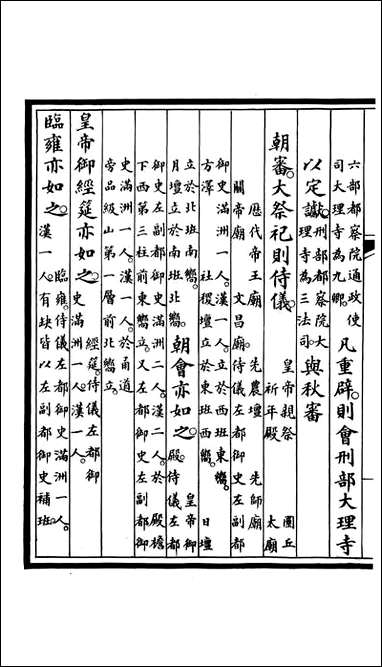 六部都察院通政使
司大理寺為九卿。
凡重辟。則會刑部大理寺
以定讞。
刑部都察院大
理寺為三法司。
與秋審
朝審。大祭祀則侍儀。
皇帝親祭 圜丘
祈年殿 太廟
歷代帝王廟 先農壇 先師廟
關帝廟 文昌廟侍儀左都御史左副都
御史滿洲一人。漢一人。立於西班東嚮。
方澤 社稷壇立於東班西嚮。 日壇
立於北班南嚮。
月壇立於南班北嚮。
朝會亦如之。
皇帝御
殿。侍儀左都
御史左副都御史滿洲二人。漢二人。於 殿檐
下西第三柱前東嚮立。又左都御史左副都御
史滿洲一人。漢一人。於甬道
旁品級山第一層前北嚮立。
皇帝御經筵亦如之。
經筵。侍儀左都御
史滿洲一人。漢一人。
臨雍亦如之。
臨雍。侍儀左都御史滿洲一人。
漢一人。有缺皆以左副都御史補班。